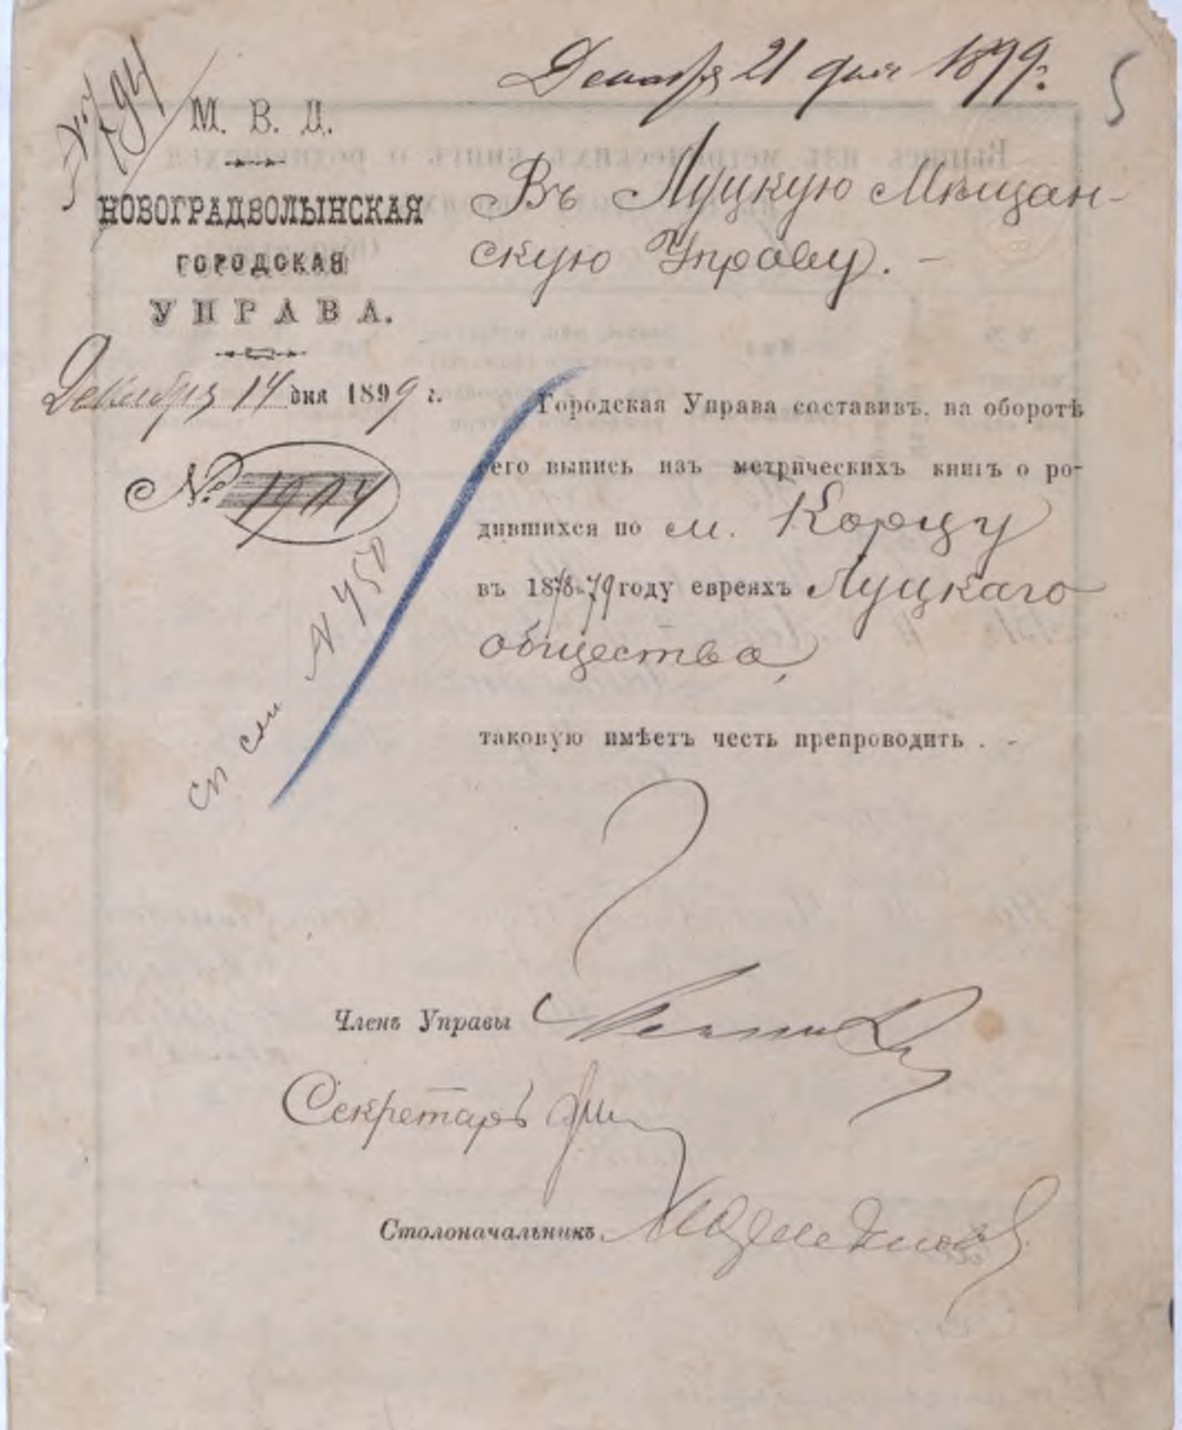 Декабря 21 дня 1899 г.
5
М. В. Д.
НОВОГРАДВОЛЫНСКАЯ
ГОРОДСКАЯ
УПРАВА.
Декабря 14 дня 1899 г.
№
Въ Луцкую Мѣщан-
скую Управу. -
Городская Управа составивъ, на оборотѣ
сего выпись изъ метрическихъ книгъ о ро-
дившихся по м. Корцу
въ 1878-79 году евреяхъ Луцкаго
общества,
таковую имѣетъ честь препроводить . -
№ 450
Членъ Управы
Секретарь
Столоначальникъ